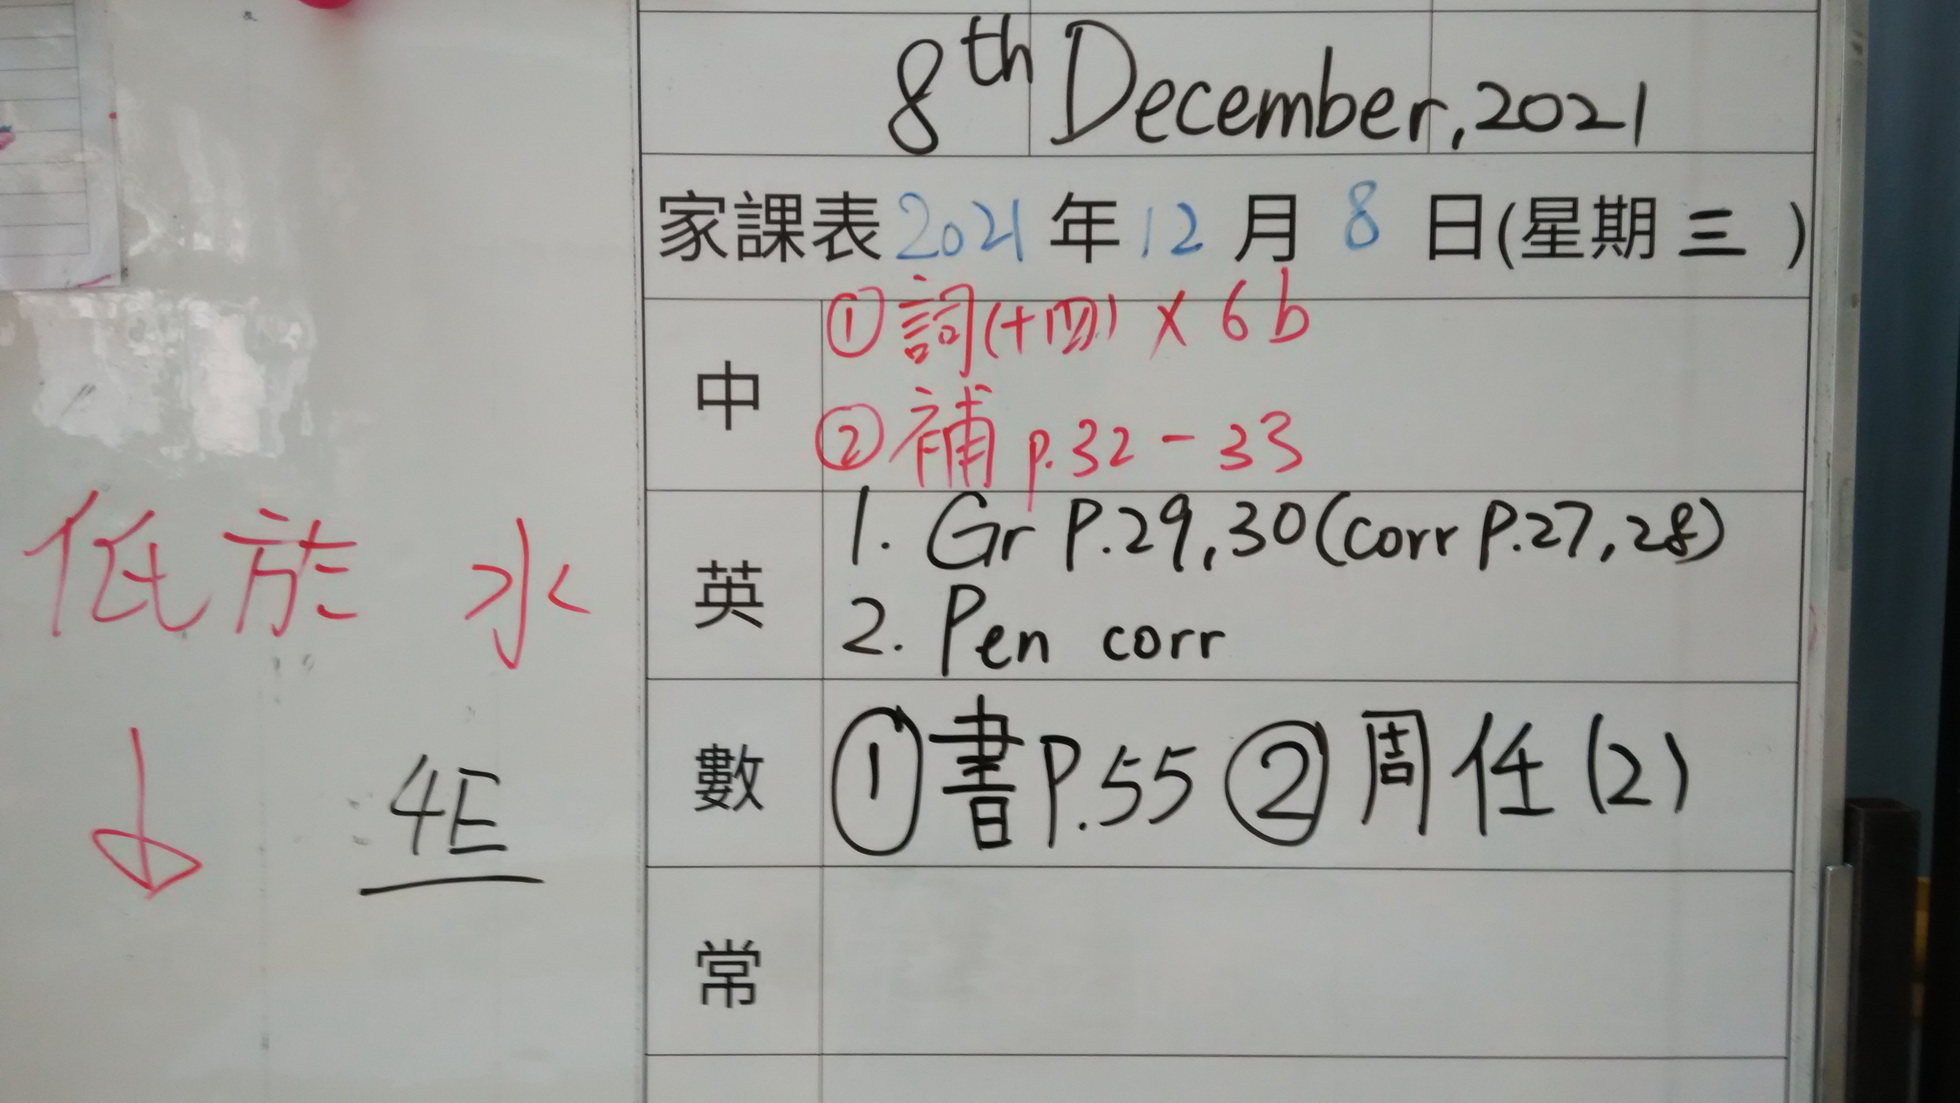 8th December, 2021
家課表 2021 年 12 月 8 日(星期 三 )
中
① 詞(十四) x 6b
② 補 p.32 - 33
英
1. Gr P.29, 30 (corr P.27, 28)
2. Pen corr
數
① 書 P.55 ② 周任(2)
常
低於 水
↓
4E